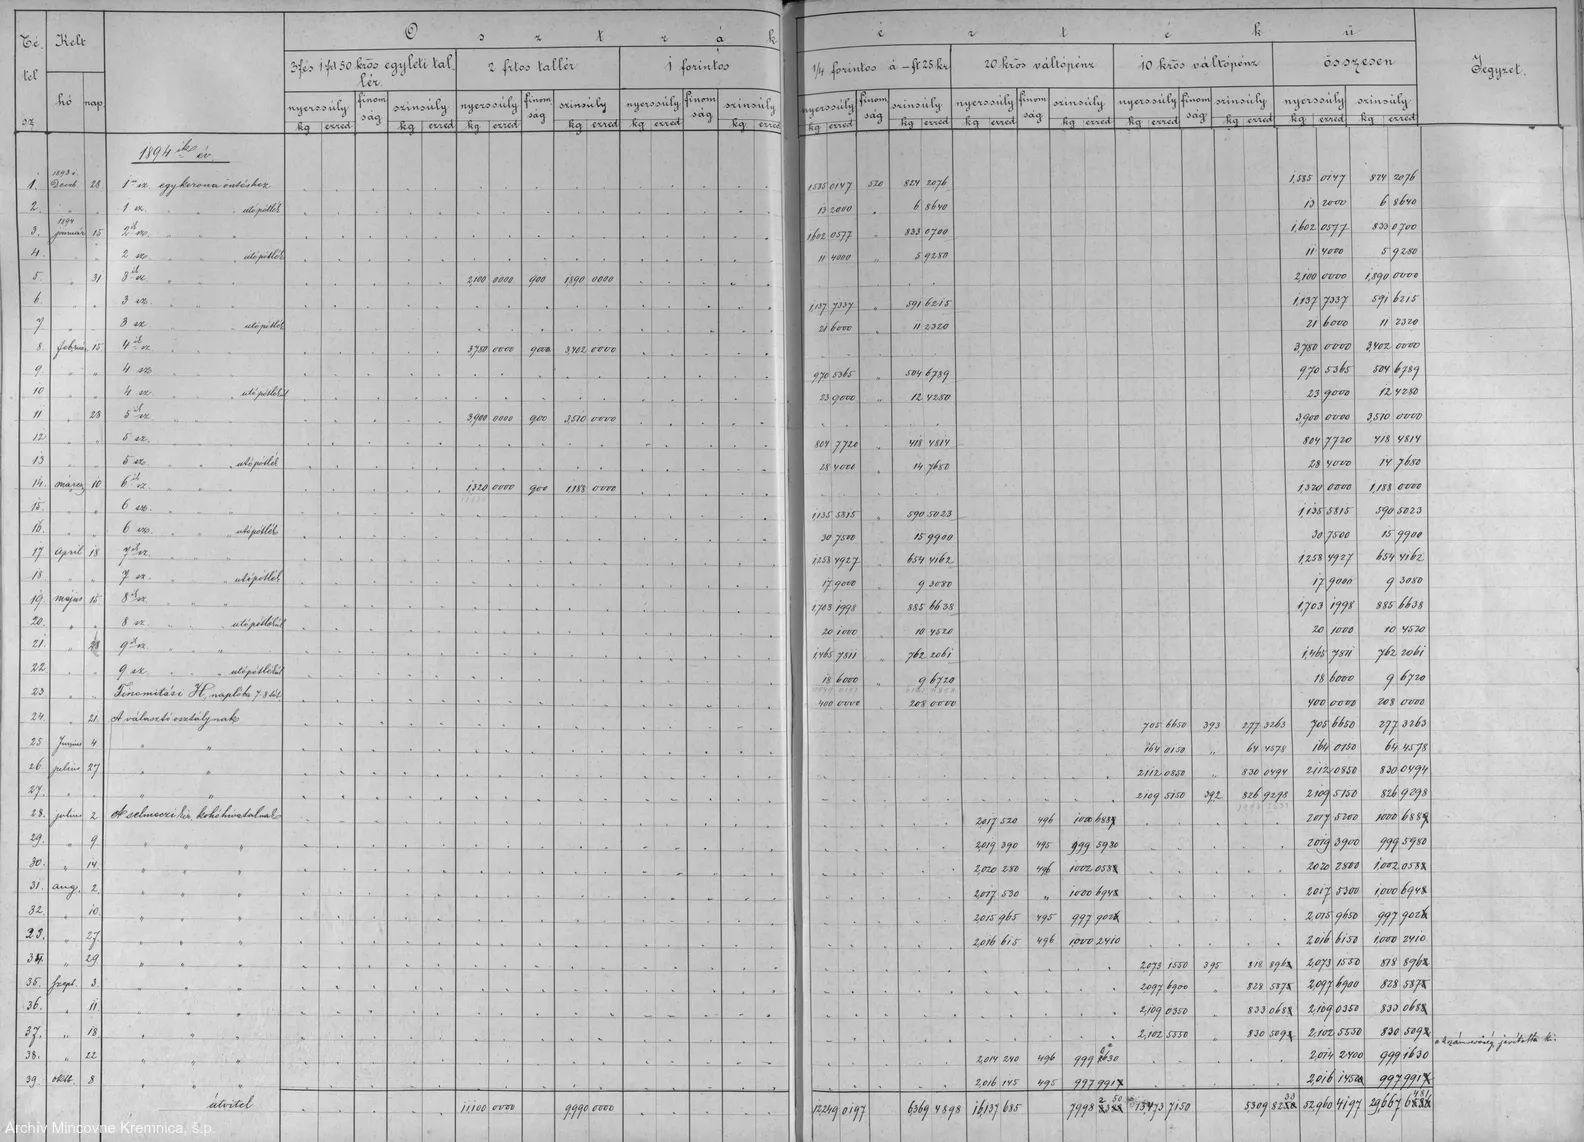 Té-
tel
sz
Kelt
hó nap.
O s z t r á k é r t é k ű
3 fés 1 frt 50 krös egyleti tallér. 2 frtos tallér 1 forintos 1/4 forintos á – ft 25 kr 20 krös váltópénz 10 krös váltópénz összesen Jegyzet.
nyerssúly finomság szinsúly nyerssúly finomság szinsúly nyerssúly finomság szinsúly nyerssúly finomság szinsúly nyerssúly finomság szinsúly nyerssúly finomság szinsúly nyerssúly szinsúly
kg ezred kg ezred kg ezred kg ezred kg ezred kg ezred kg ezred kg ezred kg ezred kg ezred kg ezred kg ezred kg ezred kg ezred
1894 év.
1. 1893 Decemb. 28 1 sz. egykorona öntéshez 1535 0147 520 824 2076 1,585 0147 824 2076
2. 1 sz. utópótlék 13 2000 6 8640 13 2000 6 8640
3. 1894 január 15 2 sz. 1602 0577 833 0700 1,602 0577 833 0700
4. 2 sz. utópótlék 11 4000 5 9280 11 4000 5 9280
5. 31 3 sz. 2,100 0000 900 1,890 0000 2,100 0000 1,890 0000
6. 3 sz. 1,137 7337 591 6215 1,137 7337 591 6215
7 3 sz. utópótlék 21 6000 11 2320 21 6000 11 2320
8. február 15 4 sz. 3,780 0000 900 3,402 0000 3,780 0000 3,402 0000
9. 4 sz. 970 5365 504 6789 970 5365 504 6789
10 4 sz. utópótlékul 23 9000 12 4280 23 9000 12 4280
11 28 5 sz. 3,900 0000 900 3,510 0000 3,900 0000 3,510 0000
12 5 sz. 804 7720 418 4814 804 7720 418 4814
13 5 sz. utópótlék 28 4000 14 7680 28 4000 14 7680
14. márcz 10 6 sz. 1,320 0000 900 1,188 0000 1,320 0000 1,188 0000
15. 6 sz. 1,135 5815 590 5023 1,135 5815 590 5023
16. 6 sz. utópótlék 30 7500 15 9900 30 7500 15 9900
17 April 18 7 sz. 1,258 4927 654 4162 1,258 4927 654 4162
18 7 sz. utópótlék 17 9000 9 3080 17 9000 9 3080
19. május 15 8 sz. 1,703 1998 885 6638 1,703 1998 885 6638
20. 8 sz. utópótlékul 20 1000 10 4520 20 1000 10 4520
21. 28 9 sz. 1,465 7811 762 2061 1,465 7811 762 2061
22 9 sz. utópótlékul 18 6000 9 6720 18 6000 9 6720
23 Finomitási H naplóba 7-8 tét. 400 0000 208 0000 400 0000 208 0000
24. 21. A választó osztálynak 705 6650 393 277 3263 705 6650 277 3263
25 Junius 4 164 0150 64 4578 164 0150 64 4578
26 julius 27 2112 0850 830 0494 2112 0850 830 0494
27. 2109 5150 392 826 9298 2109 5150 826 9298
28. julius 2 A selmeczi kir. kohóhivatalnak 2,017 520 496 1000 688 2017 5200 1000 688
29. 9 2,019 390 495 999 5980 2019 3900 999 5980
30. 14 2,020 280 496 1002 058 2020 2800 1,002 058
31. aug. 2. 2,017 530 1000 694 2017 5300 1,000 694
32. 10. 2,015 965 495 997 902 2,015 9650 997 902
33. 27. 2,016 615 496 1,000 2410 2016 6150 1,000 2410
34. 29 2,073 1550 395 818 896 2,073 1550 818 896
35. Szept. 3. 2,097 6900 828 587 2,097 6900 828 587
36. 11 2,109 0350 833 068 2,109 0350 833 068
37. 18. 2,102 5550 830 509 2,102 5550 830 509
a számvevőség javitotta ki:
38. 22 2,014 240 496 999 1630 2,014 2400 999 1630
39. okt. 8 2,016 145 495 997 991 2,016 1450 997 991
átvitel 11100 0000 9990 0000 12249 0197 6369 4898 16,137 685 7998 13473 7150 5309 52,960 4197 29,667
Archív Mincovne Kremnica, š.p.